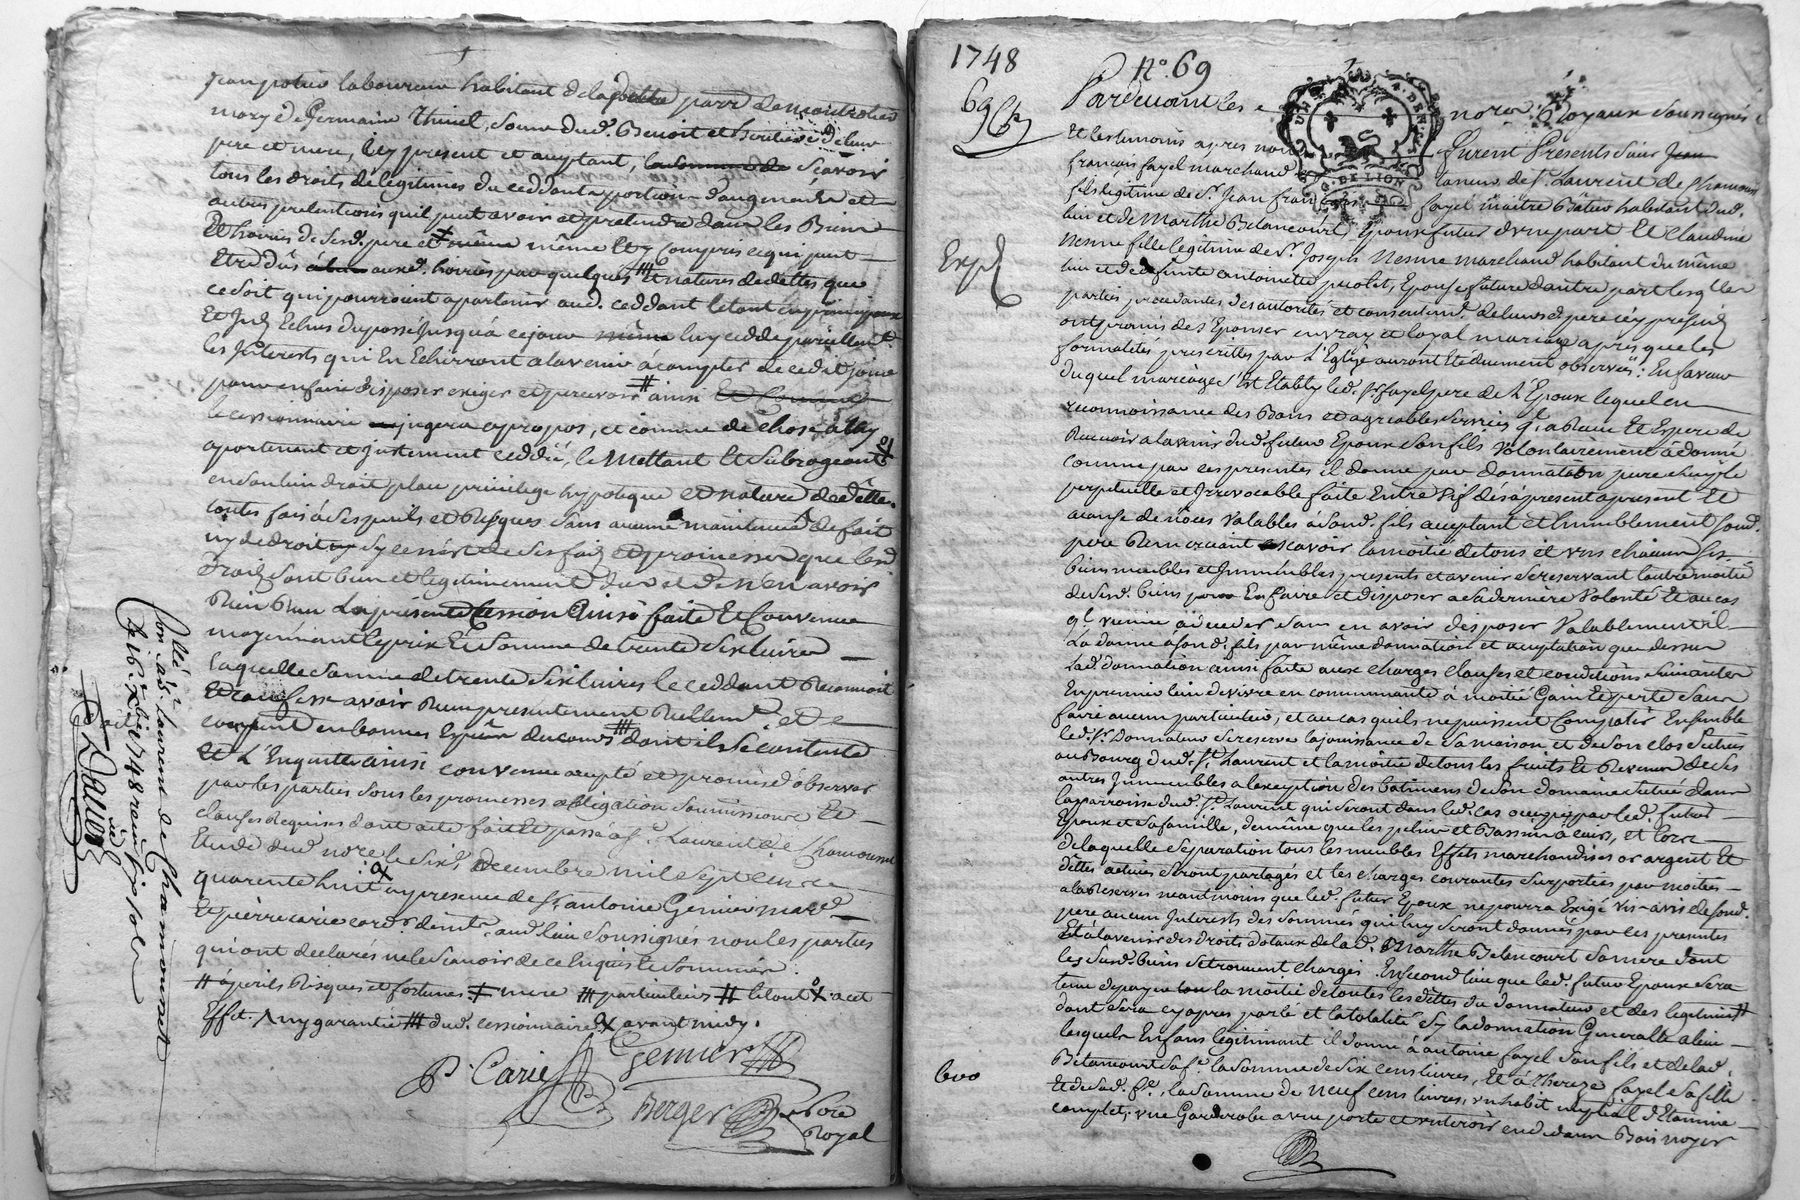 jean poture laboureur habitant de la paroisse de
mary de Germaine Thinel, soeur dud. Benoit et heritiere de leur
pere et mere, icy present et acceptant, scavoir
tous les droits de legitimes du ceddant apportion d'augment et
autres pretentions quil peut avoir et pretendre dans les Biens
Et hoiries de sesd. pere et même Et y compris ce qui peut
Etre dûs auxd. hoiries par quelques et natures de dettes que
ce soit qui pourroient apartenir aud. ceddant le tout en principaux
Et Intz Echus du passé jusqu'a ce jour luy cedde pareillemt
les Interests qui En Echerront a lavenir à compter de cedit jour
pour en faire disposer exiger et percevoir ainsi
le cessionnaire jugera apropos, et comme de chose à luy
apartenant et justement ceddé, le Mettant Et Subrogeant
en son lieu droit place privilege hypoteque et nature de dettes
toutes fois à ses perils et Risques sans aucune maintenue de fait
ny de droit sy ce n'est de ses faits et promesses que lesd
droits sont bien et legitimement dus et d'n'en avoir
Rien Reçu La presente Cession Ainsi faite Et Convenue
moyennant le prix Et somme de trente six livres
laquelle somme de trente six livres le ceddant Reconnoit
Et confesse avoir Reçu presentement Reellemt. et
comptant en bonnes Espèces du cours dont il se contente
Et L'En quitte ainsi convenu accepté et promis d'observer
par les parties sous les promesses obligation soumissions Et
clauses Requises dont acte fait Et passé a St. Laurent de Chamousset
Etude dud nore le six decembre mil sept cens
quarente huit en presence de Sr. antoine Genier mard.
Et pierre carie cordr. demt. aud. lieu soussignés non les parties
qui ont declarés ne le scavoir de ce Enquis Et sommées.
# à perils Risques et fortunes ‡ mere particuliers # le tout X acet
Effet. Λ ny garantie dud. cessionnaire X avant midy.
P. Carie Genier
Berger Nore
Royal
Collé
Con. a St. laurent de Chamousset
Le 16. Xbre 1748 reçu six sols
1748
No 69
69
Expd
Pardevant les nores Royaux soussignés
Et les temoins apres nommés furent Presents Sieur
françois fayel marchand taneur de St. Laurent de Chamousset
fils legitime de Sr. Jean françois fayel maître Batier habitant dud.
lieu et de Marthe Betancourt, Epoux futur d'une part Et Claudine
Nesme fille legitime de Sr. Joseph Nesme marchand habitant du même
lieu et de deffunte antoinette perolet, Epouse future d'autre part lesqlles
parties procedantes des autorités et consentemt. de leursd pere icy presents
ont promis de s'Epouser en vray et loyal mariage apres que les
formalités prescrittes par L'Eglize auront Eté duement observées: En faveur
duquel mariage s'est Etably led. Sr. fayel pere de L'Epoux lequel en
reconnoissance des Bons et agreables services q'l a Reçu Et Espere de
Recevoir a lavenir dud. futur Epoux son fils Volontairement à donné
comme par ces presentes il donne par donnation pure simple
perpetuelle et Irrevocable faite Entre Vif dès à present a present Et
a cause de nôces Valables à sond. fils acceptant et humblement sond.
pere Remerciant scavoir la moitié de tous et uns chacuns ses
biens meubles et Immeubles presents et avenir se reservant lautre moitié
de sesd. biens pour En faire et disposer a sa derniere Volonté Et au cas
ql. vienne à deceder sans en avoir disposer Valablement il
La donne a sond. fils par même donnation et acceptation que dessus
Lad. donnation ainsi faite aux charges clauses et conditions suivantes
En premier lieu de vivre en communauté à moitié Gain Et perte sans
faire aucun particulier, et au cas qu'ils ne puissent Compatir Ensemble
led. Sr. Donnateur se reserve la jouissance de sa maison et de son clos scitués
au Bourg dud. St. Laurent et la moitié de tous les fruits Et Revenus de ses
autres Immeubles a l'exception des batimens de son domaine scitué dans
la parroisse dud. St. Laurent qui seront dans led. cas occupés par led. futur
Epoux et sa famille, de même que les puliers et Bassin à cuirs, et lors
de laquelle separation tous les meubles Effets marchandises or argent Et
dêttes actives seront partagés et les charges courantes suportées par moitié
a la Reserve neantmoins que led. futur Epoux ne pourra Exigé vis-avis de sond.
pere aucun Interests des sommes qui luy seront données par les presentes
Et à l'avenir des droits dotaux de lad. Marthe Betancourt sa mere dont
les susd. biens se trouvent chargés. En second lieu que led. futur Epoux sera
tenu de payer la moitié de toutes les dêttes du donnateur et des legitimes
dont sera cy apres parlé et la totalité sy la donnation Generalle a lieu
lesquels Enfans legitimant il donne à antoine fayel son fils et de lad.
600 Betancourt sa fe. la somme de six cens livres, Et à therese fayel sa fille
Et de sad. fe. la somme de neuf cens livres, un habit nuptial d'Etamine
complet, une Garderobe a une porte et un tiroir en dedans Bois noyer